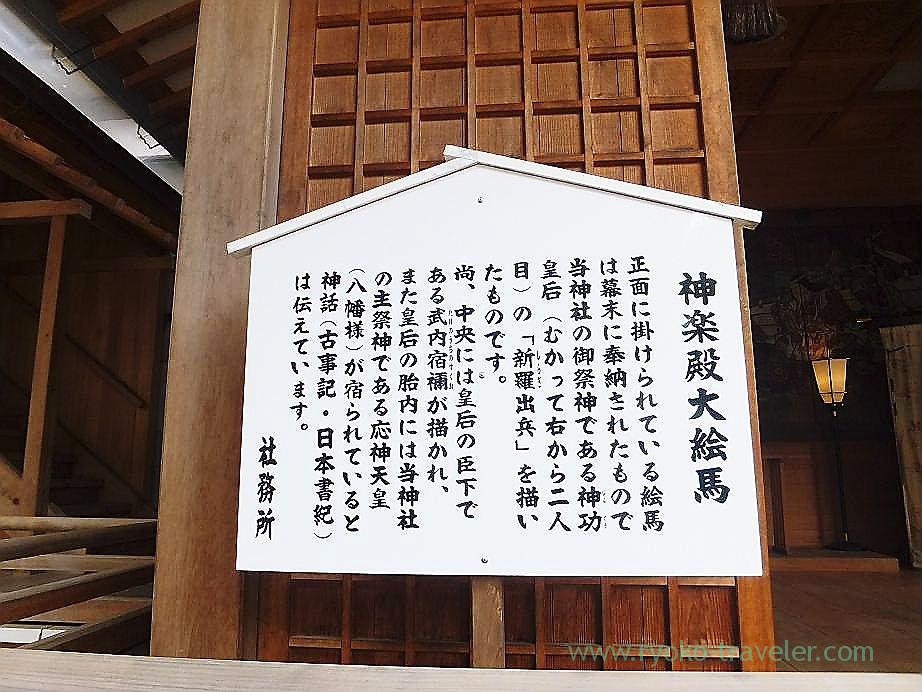 神楽殿大絵馬
正面に掛けられている絵馬
は幕末に奉納されたもので
当神社の御祭神である神功
皇后（むかって右から二人
目）の「新羅出兵」を描い
たものです。
尚、中央には皇后の臣下で
ある武内宿禰が描かれ、
また皇后の胎内には当神社
の主祭神である応神天皇
（八幡様）が宿られていると
神話（古事記・日本書紀）
は伝えています。
社務所
www.ryoko-traveler.com